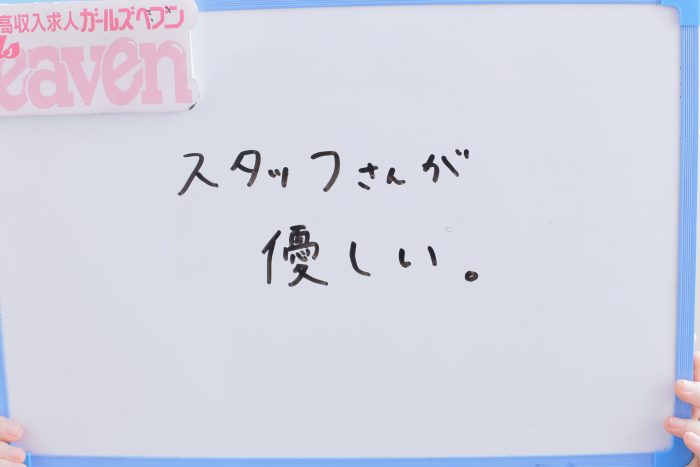 高収入求人ガールズヘブン
's
eaven
スタッフさんが
優しい。